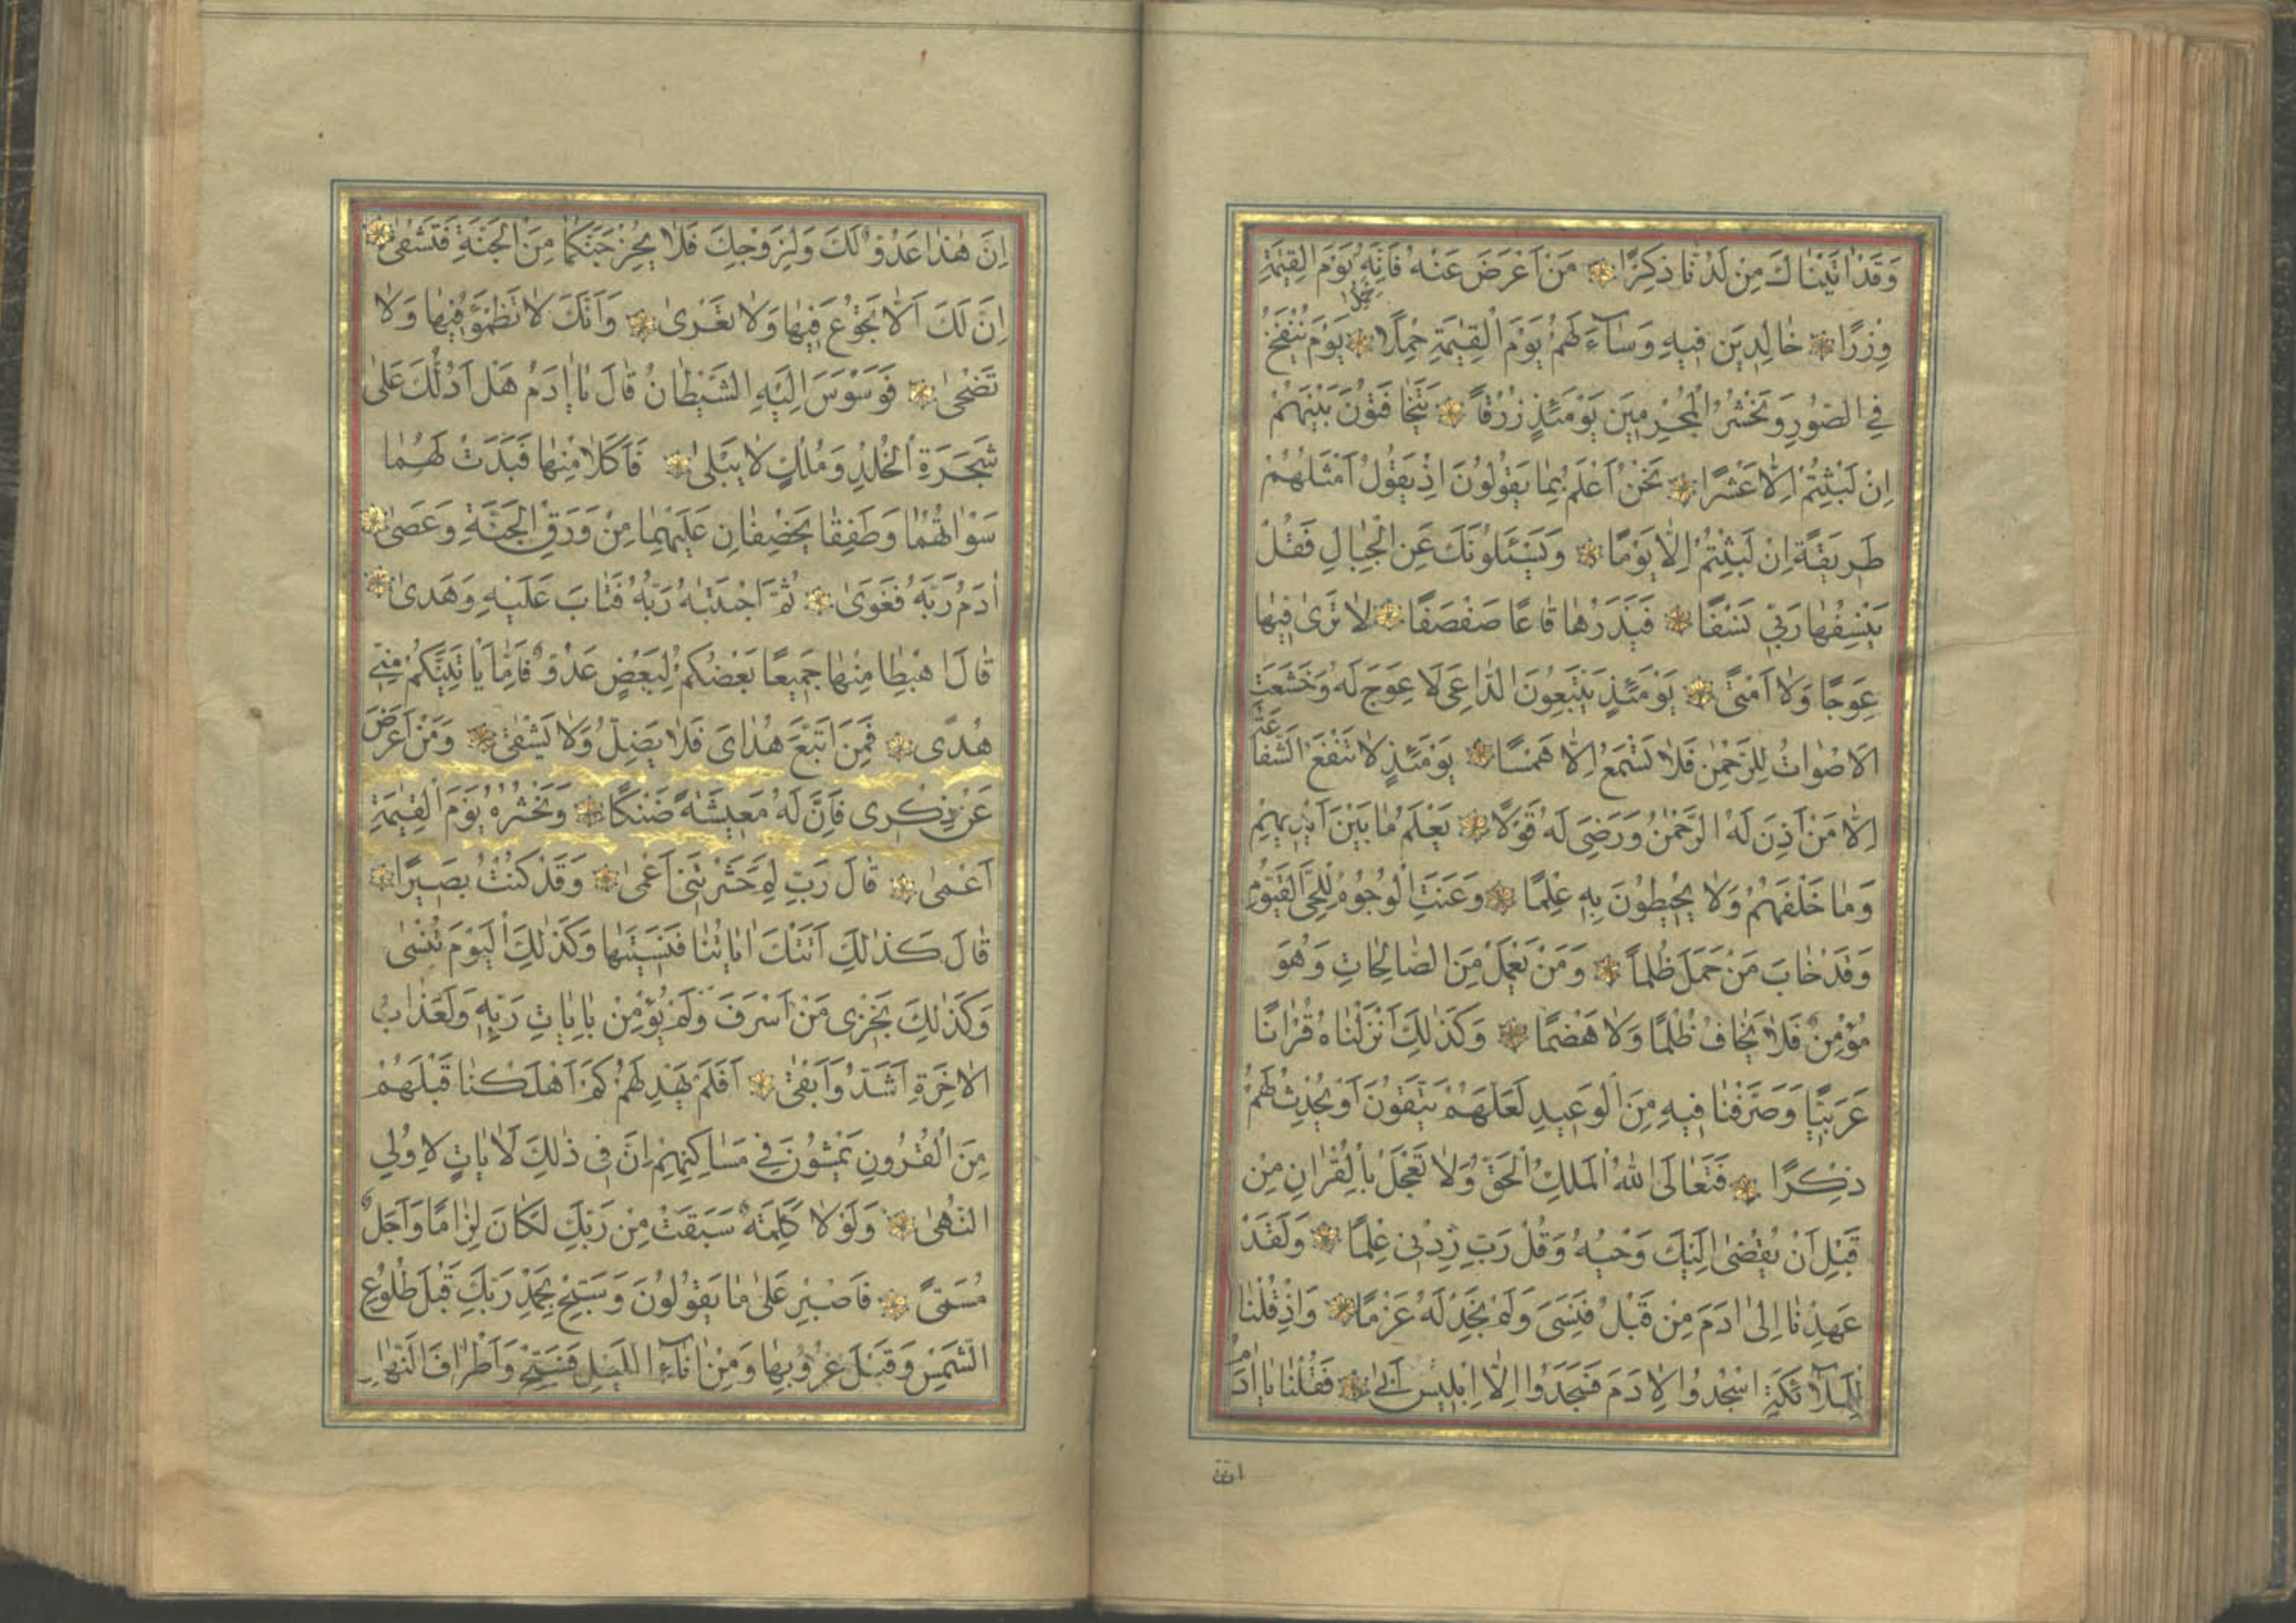 وَقَدْ اٰتَيْنَاكَ مِنْ لَدُنَّا ذِكْرًا مَنْ اَعْرَضَ عَنْهُ فَاِنَّهُ يَوْمَ الْقِيٰمَةِ
وِزْرًا خَالِدِينَ فِيهِ وَسَآءَ لَهُمْ يَوْمَ الْقِيٰمَةِ حِمْلًا يَوْمَ يُنْفَخُ
فِي الصُّورِ وَنَحْشُرُ الْمُجْرِمِينَ يَوْمَئِذٍ زُرْقًا يَتَخَافَتُونَ بَيْنَهُمْ
اِنْ لَبِثْتُمْ اِلَّا عَشْرًا نَحْنُ اَعْلَمُ بِمَا يَقُولُونَ اِذْ يَقُولُ اَمْثَلُهُمْ
طَرِيقَةً اِنْ لَبِثْتُمْ اِلَّا يَوْمًا وَيَسْئَلُونَكَ عَنِ الْجِبَالِ فَقُلْ
يَنْسِفُهَا رَبِّي نَسْفًا فَيَذَرُهَا قَاعًا صَفْصَفًا لَا تَرٰى فِيهَا
عِوَجًا وَلَا اَمْتًا يَوْمَئِذٍ يَتَّبِعُونَ الدَّاعِىَ لَا عِوَجَ لَهُ وَخَشَعَتِ
الْاَصْوَاتُ لِلرَّحْمٰنِ فَلَا تَسْمَعُ اِلَّا هَمْسًا يَوْمَئِذٍ لَا تَنْفَعُ الشَّفَاعَةُ
اِلَّا مَنْ اَذِنَ لَهُ الرَّحْمٰنُ وَرَضِىَ لَهُ قَوْلًا يَعْلَمُ مَا بَيْنَ اَيْدِيهِمْ
وَمَا خَلْفَهُمْ وَلَا يُحِيطُونَ بِهِ عِلْمًا وَعَنَتِ الْوُجُوهُ لِلْحَىِّ الْقَيُّومِ
وَقَدْ خَابَ مَنْ حَمَلَ ظُلْمًا وَمَنْ يَعْمَلْ مِنَ الصَّالِحَاتِ وَهُوَ
مُؤْمِنٌ فَلَا يَخَافُ ظُلْمًا وَلَا هَضْمًا وَكَذٰلِكَ اَنْزَلْنَاهُ قُرْاٰنًا
عَرَبِيًّا وَصَرَّفْنَا فِيهِ مِنَ الْوَعِيدِ لَعَلَّهُمْ يَتَّقُونَ اَوْ يُحْدِثُ لَهُمْ
ذِكْرًا فَتَعَالَى اللّٰهُ الْمَلِكُ الْحَقُّ وَلَا تَعْجَلْ بِالْقُرْاٰنِ مِنْ
قَبْلِ اَنْ يُقْضٰى اِلَيْكَ وَحْيُهُ وَقُلْ رَبِّ زِدْنِي عِلْمًا وَلَقَدْ
عَهِدْنَا اِلٰى اٰدَمَ مِنْ قَبْلُ فَنَسِىَ وَلَمْ نَجِدْ لَهُ عَزْمًا وَاِذْ قُلْنَا
لِلْمَلٰٓائِكَةِ اسْجُدُوا لِاٰدَمَ فَسَجَدُوا اِلَّا اِبْلِيسَ اَبٰى فَقُلْنَا يَا اٰدَمُ
ان
اِنَّ هٰذَا عَدُوٌّ لَكَ وَلِزَوْجِكَ فَلَا يُخْرِجَنَّكُمَا مِنَ الْجَنَّةِ فَتَشْقٰى
اِنَّ لَكَ اَلَّا تَجُوعَ فِيهَا وَلَا تَعْرٰى وَاَنَّكَ لَا تَظْمَؤُا فِيهَا وَلَا
تَضْحٰى فَوَسْوَسَ اِلَيْهِ الشَّيْطَانُ قَالَ يَا اٰدَمُ هَلْ اَدُلُّكَ عَلٰى
شَجَرَةِ الْخُلْدِ وَمُلْكٍ لَا يَبْلٰى فَاَكَلَا مِنْهَا فَبَدَتْ لَهُمَا
سَوْاٰتُهُمَا وَطَفِقَا يَخْصِفَانِ عَلَيْهِمَا مِنْ وَرَقِ الْجَنَّةِ وَعَصٰى
اٰدَمُ رَبَّهُ فَغَوٰى ثُمَّ اجْتَبٰهُ رَبُّهُ فَتَابَ عَلَيْهِ وَهَدٰى
قَالَ اهْبِطَا مِنْهَا جَمِيعًا بَعْضُكُمْ لِبَعْضٍ عَدُوٌّ فَاِمَّا يَاْتِيَنَّكُمْ مِنِّي
هُدًى فَمَنِ اتَّبَعَ هُدَاىَ فَلَا يَضِلُّ وَلَا يَشْقٰى وَمَنْ اَعْرَضَ
عَنْ ذِكْرِى فَاِنَّ لَهُ مَعِيشَةً ضَنْكًا وَنَحْشُرُهُ يَوْمَ الْقِيٰمَةِ
اَعْمٰى قَالَ رَبِّ لِمَ حَشَرْتَنِي اَعْمٰى وَقَدْ كُنْتُ بَصِيرًا
قَالَ كَذٰلِكَ اَتَتْكَ اٰيَاتُنَا فَنَسِيتَهَا وَكَذٰلِكَ الْيَوْمَ تُنْسٰى
وَكَذٰلِكَ نَجْزِى مَنْ اَسْرَفَ وَلَمْ يُؤْمِنْ بِاٰيَاتِ رَبِّهِ وَلَعَذَابُ
الْاٰخِرَةِ اَشَدُّ وَاَبْقٰى اَفَلَمْ يَهْدِ لَهُمْ كَمْ اَهْلَكْنَا قَبْلَهُمْ
مِنَ الْقُرُونِ يَمْشُونَ فِي مَسَاكِنِهِمْ اِنَّ فِي ذٰلِكَ لَاٰيَاتٍ لِاُولِي
النُّهٰى وَلَوْلَا كَلِمَةٌ سَبَقَتْ مِنْ رَبِّكَ لَكَانَ لِزَامًا وَاَجَلٌ
مُسَمًّى فَاصْبِرْ عَلٰى مَا يَقُولُونَ وَسَبِّحْ بِحَمْدِ رَبِّكَ قَبْلَ طُلُوعِ
الشَّمْسِ وَقَبْلَ غُرُوبِهَا وَمِنْ اٰنَآءِ اللَّيْلِ فَسَبِّحْ وَاَطْرَافَ النَّهَارِ